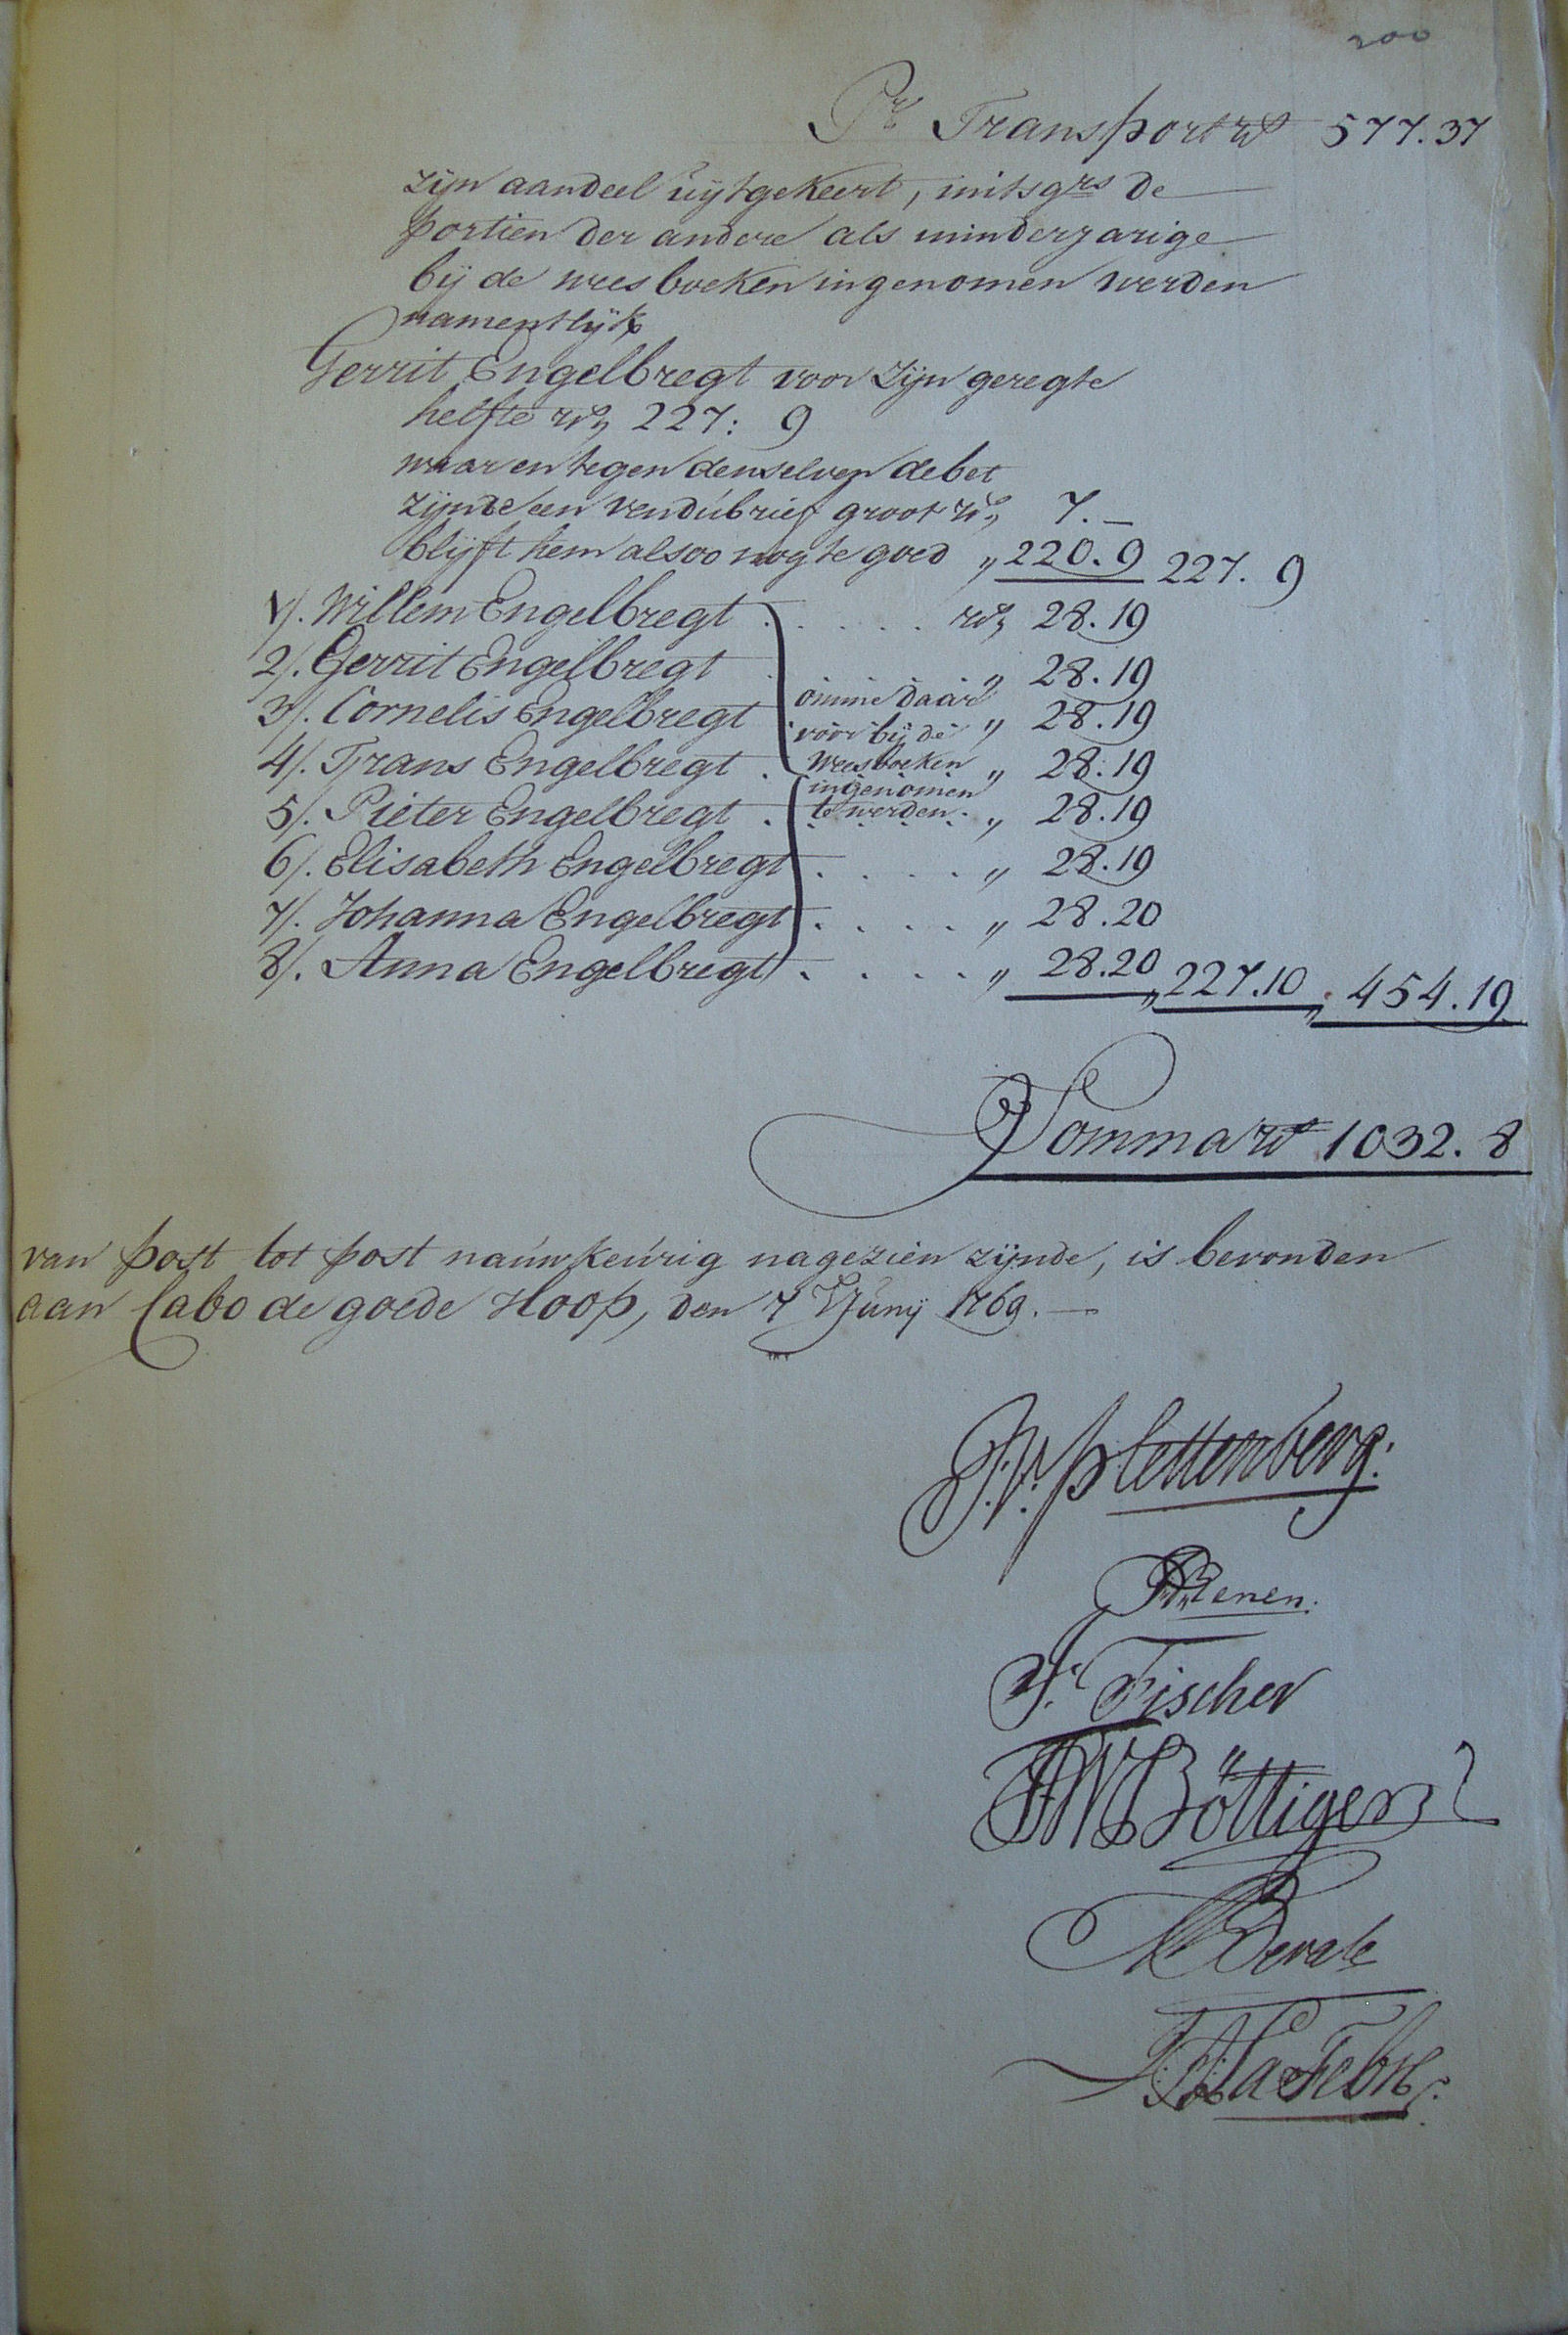 200
Pr Transport rd 577.37
zijn aandeel uijtgekeert, mitsgrs de
portien der andere als minderjarige
bij de weesboeken ingenomen werden
namentlijk
Gerrit Engelbregt voor zijn geregte
helfte rds 227: 9
waar en tegen denselven debet
zijnde een vendúbrief groot rds 7. —
blijft hem alsoo nog te goed „ 220. 9 227. 9
1/. Willem Engelbregt . . . . . rds 28.19
2/. Gerrit Engelbregt . . . . „ 28.19
3/. Cornelis Engelbregt omme daar „ 28.19
voor bij de
4/. Frans Engelbregt . weesboeken „ 28.19
ingenomen
5/. Pieter Engelbregt . te werden. „ 28.19
6/. Elisabeth Engelbregt . . . . „ 28.19
7/. Johanna Engelbregt . . . . „ 28.20
8/. Anna Engelbregt . . . . „ 28.20 „ 227.10 „ 454.19
Somma rd 1032. 8
van post tot post naúwkeúrig nagezien zijnde, is bevonden
aan Cabo de goede Hoop, den 7 Junij 1769. —
J. V. Plettenberg.
Renen.
J. Fischer
Böttiger
Bergh
La Febre